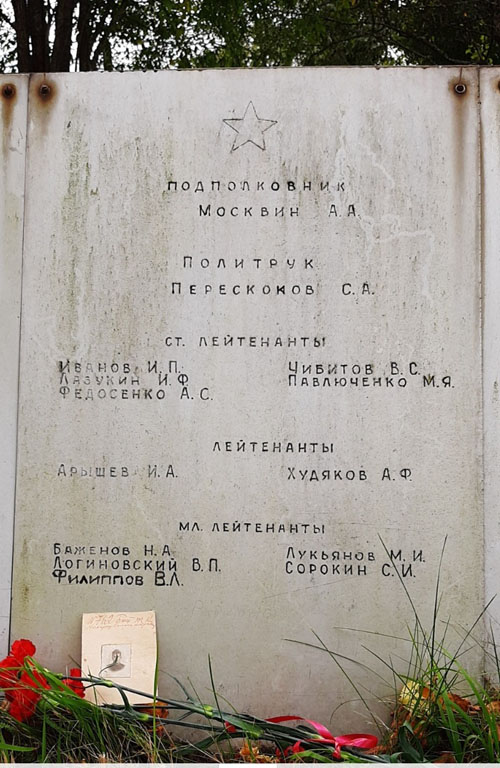 ПОДПОЛКОВНИК
МОСКВИН А.А.
ПОЛИТРУК
ПЕРЕСКОКОВ С.А.
СТ. ЛЕЙТЕНАНТЫ
ИВАНОВ И.П.
ЛАЗУКИН И.Ф.
ФЕДОСЕНКО А.С.
ЧИБИТОВ В.С.
ПАВЛЮЧЕНКО М.Я.
ЛЕЙТЕНАНТЫ
АРЫШЕВ И.А.
ХУДЯКОВ А.Ф.
МЛ. ЛЕЙТЕНАНТЫ
БАЖЕНОВ Н.А.
ЛОГИНОВСКИЙ В.П.
ФИЛИППОВ В.Л.
ЛУКЬЯНОВ М.И.
СОРОКИН С.И.